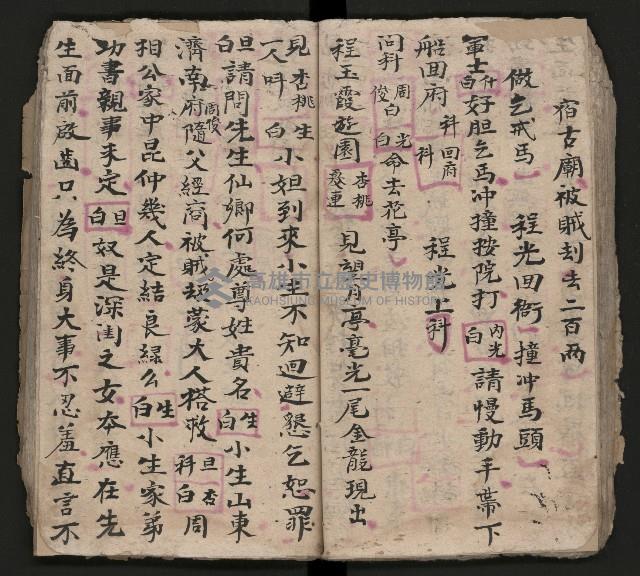 宿古廟被賊刦去二百兩
做乞戒馬 程光回衙 撞冲馬頭
軍士什白好胆乞馬冲撞按院打 內光白請慢動手帶下
船回府 科回府科 程光上科
问科周俊白 光白命去花亭
程玉霞遊園杏桃 見望月亭毫光一尾金龍現出
見杏桃 生 小姐到來小生不知迴避懇乞恕罪
一人吽 白
旦白請問先生仙鄉何處尊姓貴名生白小生山東
濟南府周俊隨父經商被賊刼蒙大人搭救 旦科杏白周
相公家中昆仲幾人定結良緣么生白小生家弟
功書親事未定旦白奴是深閨之女夲應在先
生面前啟齒只為終身大事不忍羞直言不
高雄市立歷史博物館
KAOHSIUNG MUSEUM OF HISTORY